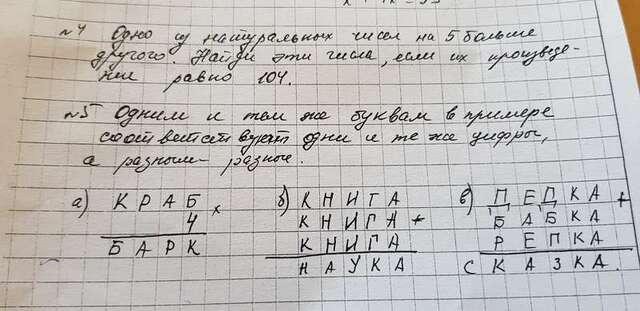 №4 Одно из натуральных чисел на 5 больше
другого. Найди эти числа, если их произведе-
ние равно 104.
№5 Одним и тем же буквам в примере
соответствуют одни и те же цифры,
а разным - разные.
а) К Р А Б ×
4
Б А Р К
б) К Н И Г А
К Н И Г А +
К Н И Г А
Н А У К А
в) Д Е Д К А +
Б А Б К А
Р Е П К А
С К А З К А.